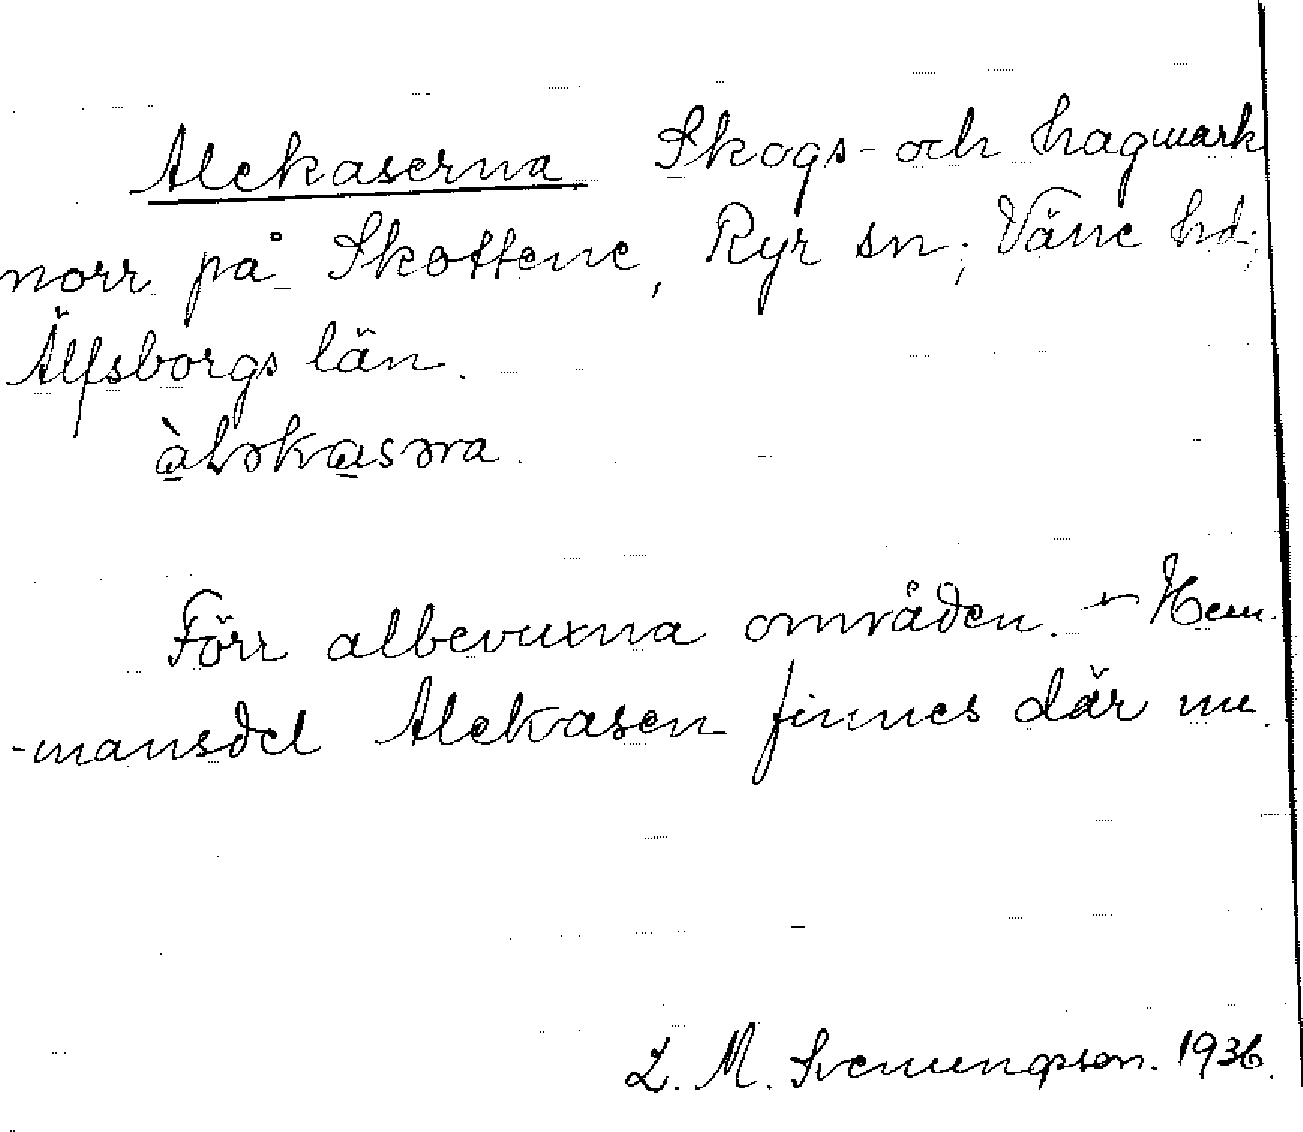 Alekaserna Skogs- och hagmark
norr på Skottene, Ryr sn; Väne hd;
Älfsborgs län.
àləkasəra.
Förr albevuxna områden. - Hem-
-mansdel Alekasen finnes där nu.
L. M. Svenungsson. 1936.